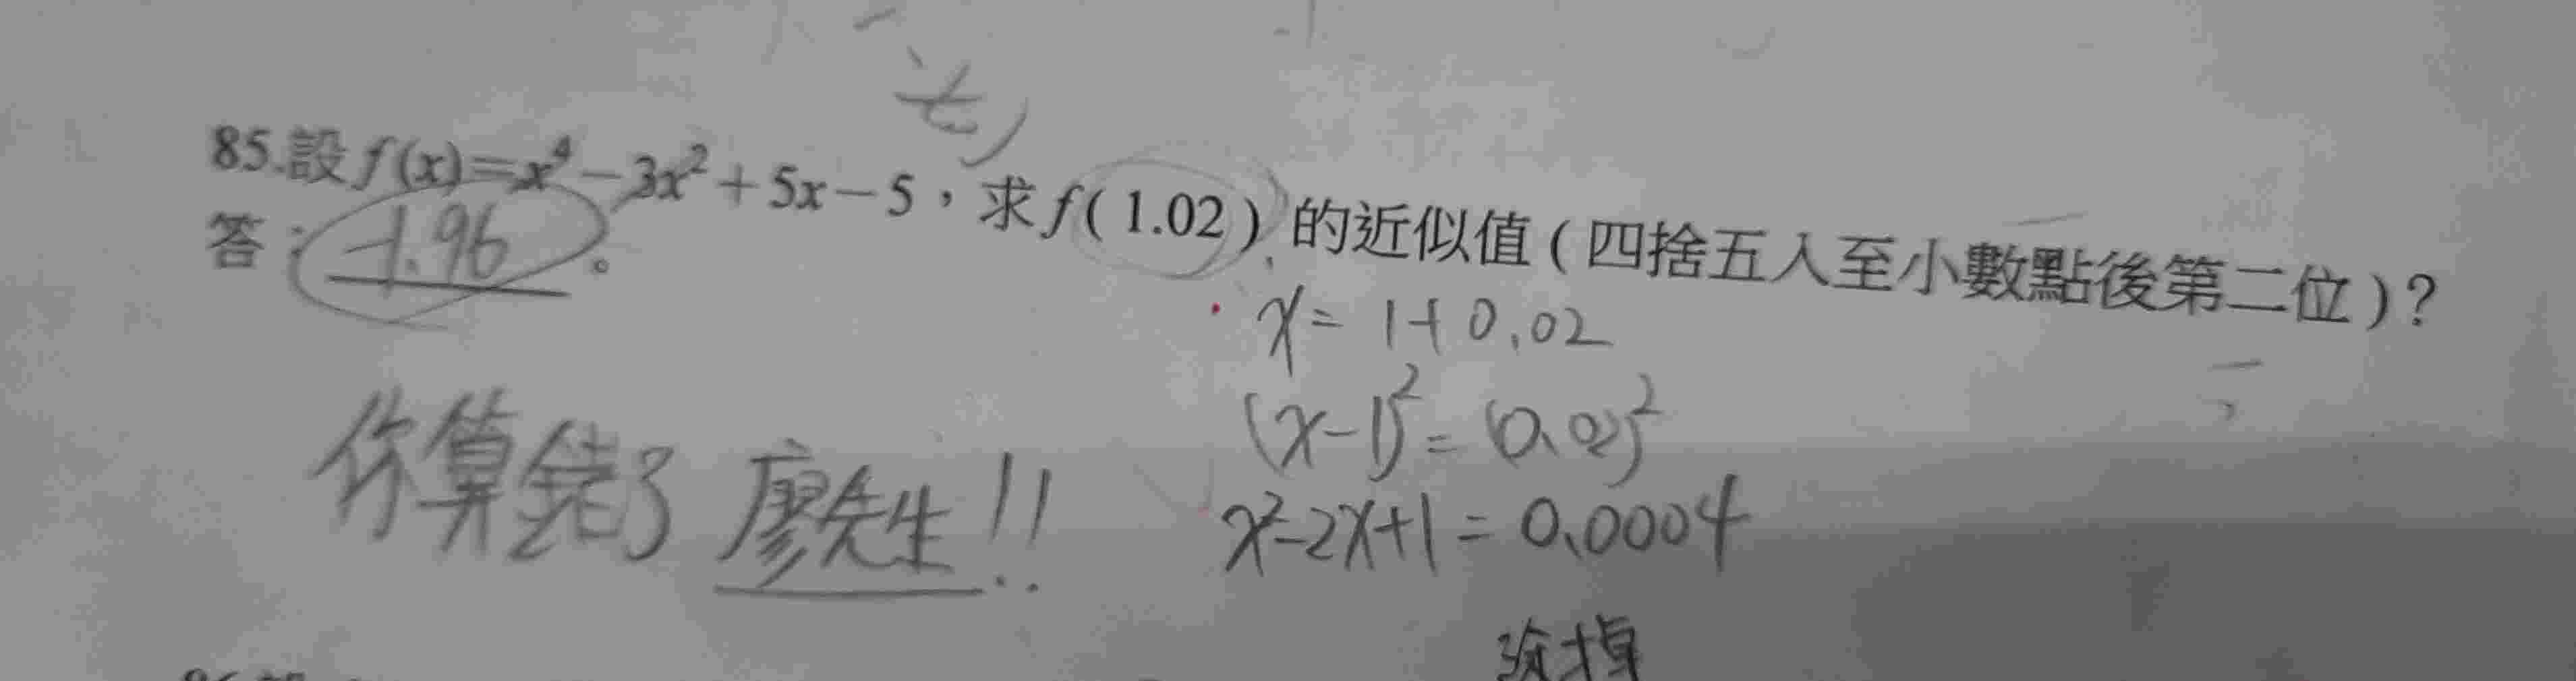 85.設 f(x)=x⁴－3x²＋5x－5，求 f(1.02) 的近似值(四捨五入至小數點後第二位)？
答：-1.96。
x = 1+0.02
(x-1)² = (0.02)²
x²-2x+1 = 0.0004
你算錯了 廖先生!!